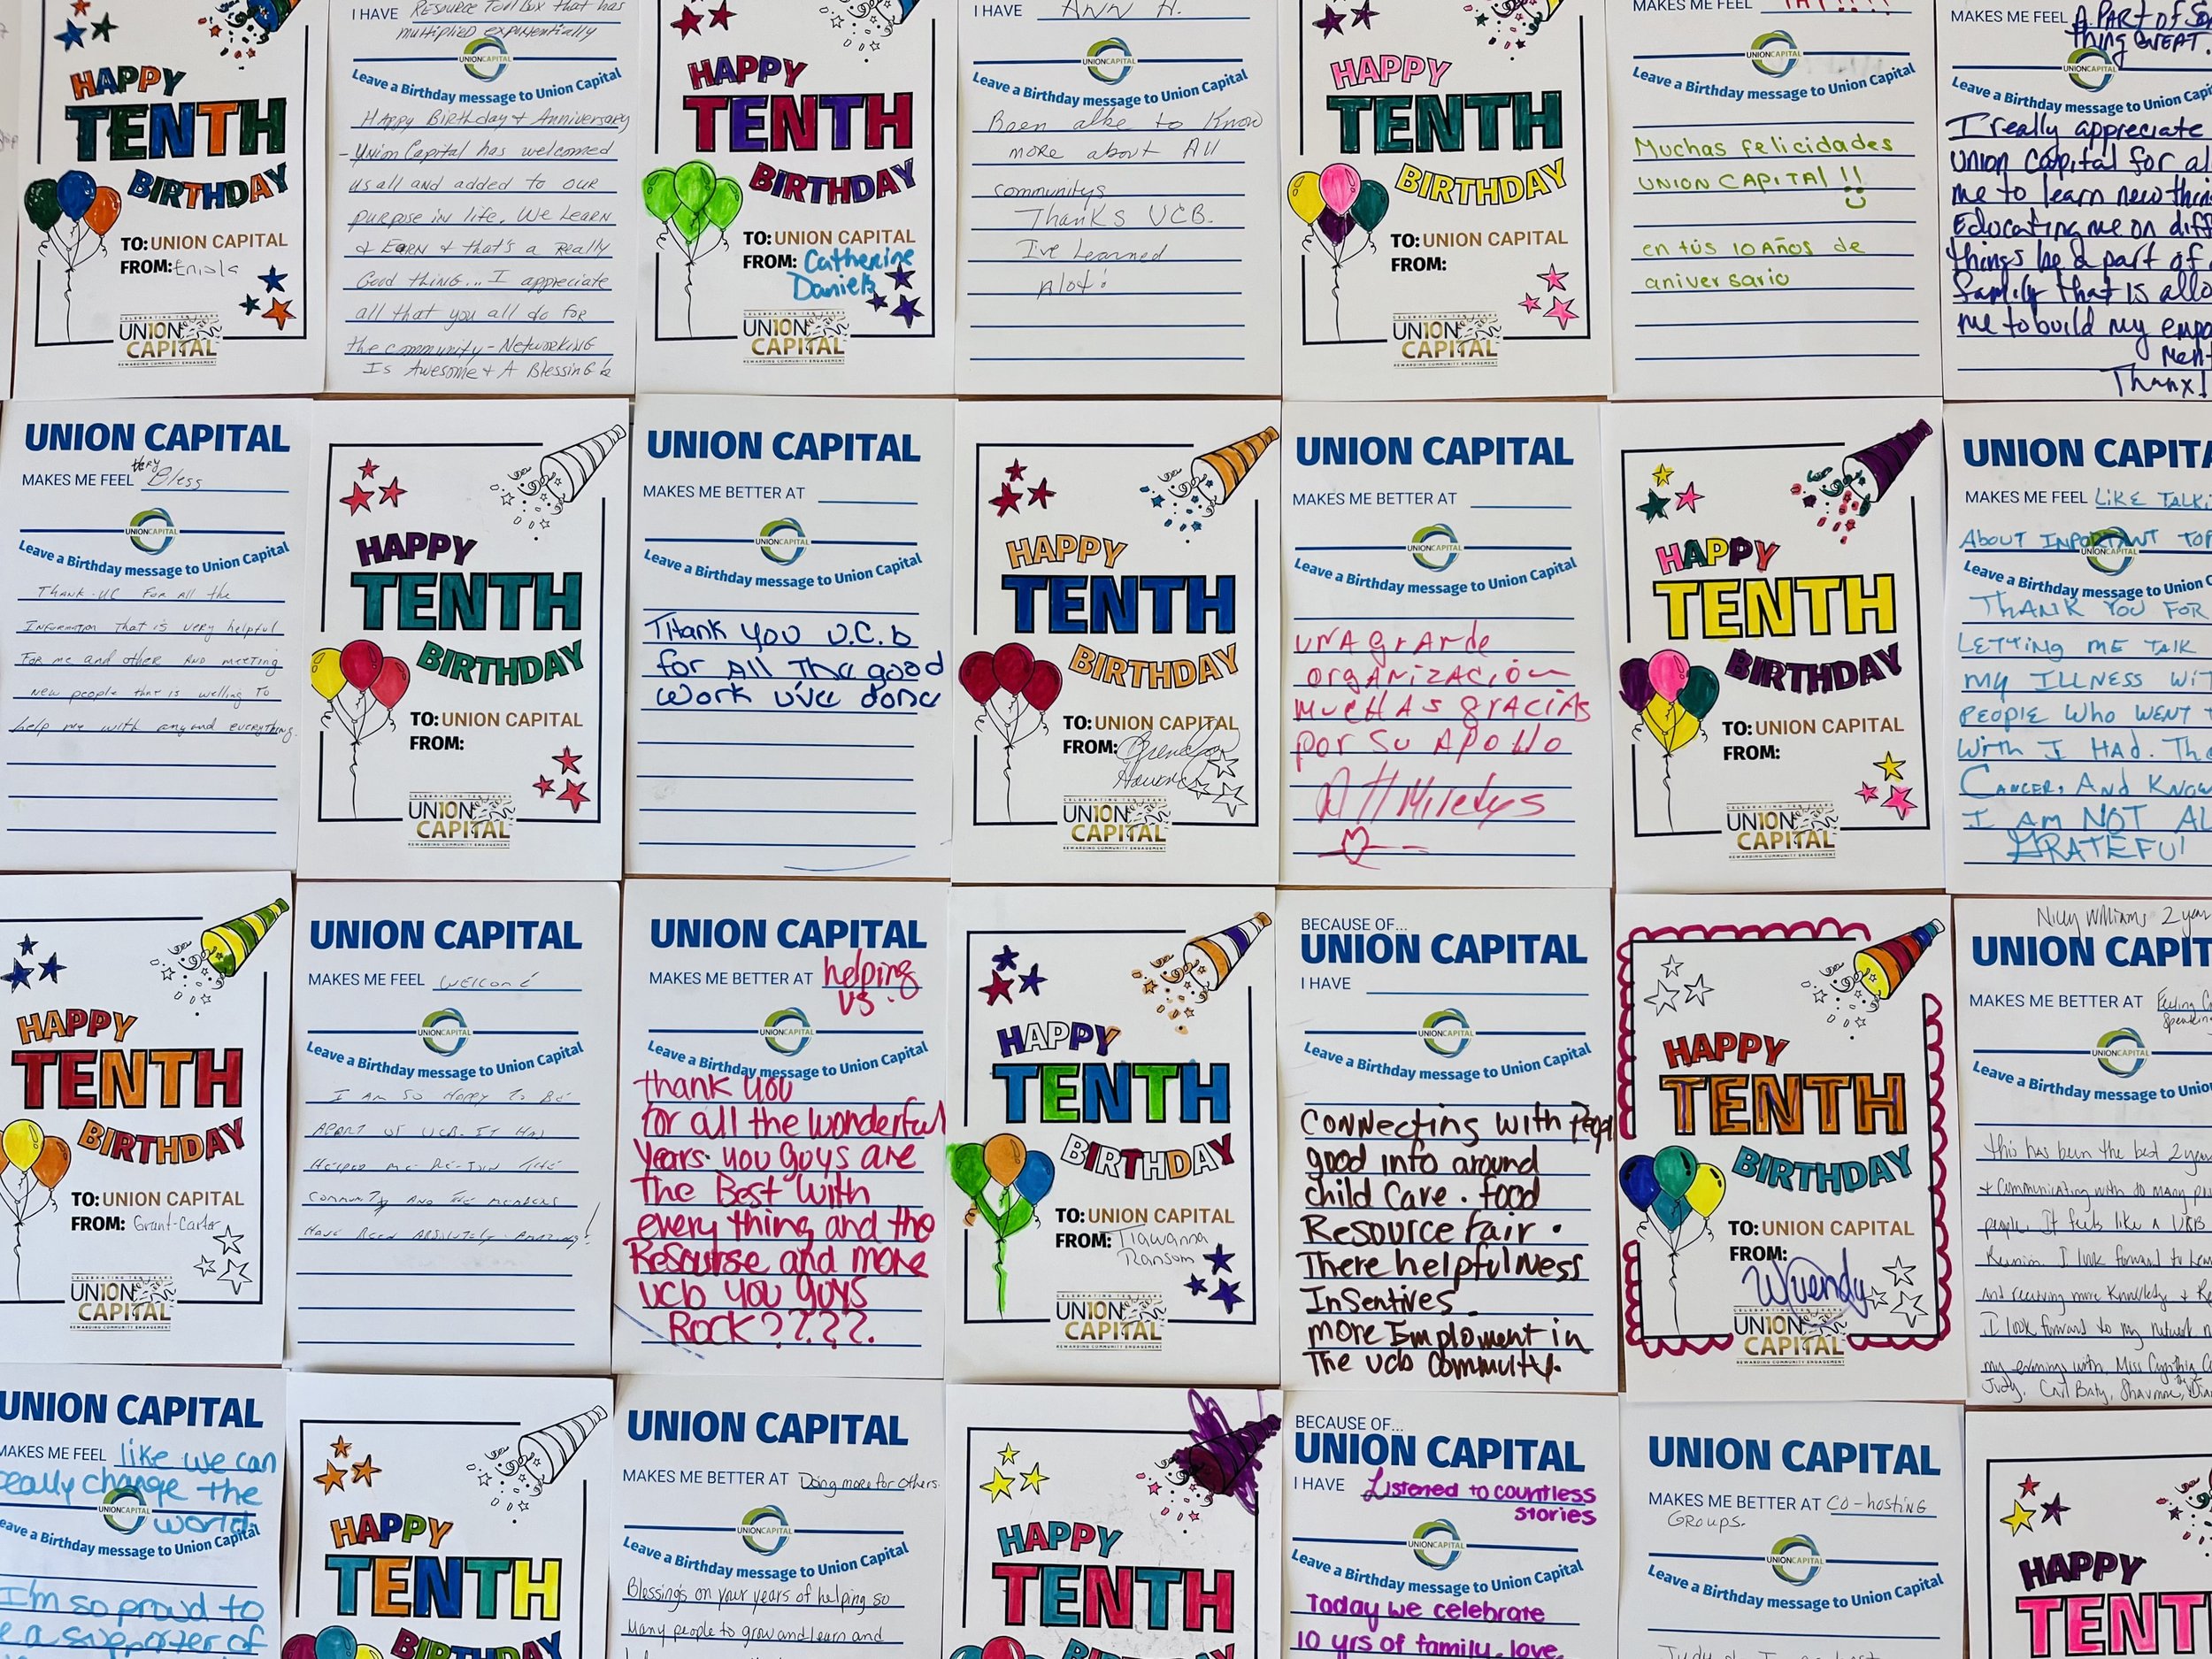 HAPPY
TENTH
BIRTHDAY
TO: UNION CAPITAL
FROM: Eniola
CELEBRATING TEN YEARS
UN10N
CAPITAL
REWARDING COMMUNITY ENGAGEMENT
I HAVE Resource Toolbox that has
multiplied exponentially
UNIONCAPITAL
Leave a Birthday message to Union Capital
Happy Birthday & Anniversary
- Union Capital has welcomed
us all and added to our
purpose in life. We Learn
& Earn & that's a Really
Good thing... I appreciate
all that you all do for
the community - Networking
Is Awesome & A Blessing
HAPPY
TENTH
BIRTHDAY
TO: UNION CAPITAL
FROM: Catherine
Daniels
CELEBRATING TEN YEARS
UN10N
CAPITAL
REWARDING COMMUNITY ENGAGEMENT
I HAVE Ann H.
UNIONCAPITAL
Leave a Birthday message to Union Capital
Been alke to Know
more about All
communitys
Thanks UCB.
I've Learned
Alot!
HAPPY
TENTH
BIRTHDAY
TO: UNION CAPITAL
FROM:
CELEBRATING TEN YEARS
UN10N
CAPITAL
REWARDING COMMUNITY ENGAGEMENT
MAKES ME FEEL
UNIONCAPITAL
Leave a Birthday message to Union Capital
Muchas felicidades
UNION CAPITAL!!
en tús 10 Años de
aniversario
MAKES ME FEEL A PART of So
thing GREAT.
UNIONCAPITAL
Leave a Birthday message to Union Capi
I really appreciate
union Capital for al
me to learn new thin
Educating me on diff
things be a part of
family that is allo
me to build my empo
ment
Thanx!
UNION CAPITAL
MAKES ME FEEL very Bless
UNIONCAPITAL
Leave a Birthday message to Union Capital
Thank-UC For all the
Information that is very helpful
For me and other and meeting
new people that is welling to
help me with any and everything.
HAPPY
TENTH
BIRTHDAY
TO: UNION CAPITAL
FROM:
CELEBRATING TEN YEARS
UN10N
CAPITAL
REWARDING COMMUNITY ENGAGEMENT
UNION CAPITAL
MAKES ME BETTER AT
UNIONCAPITAL
Leave a Birthday message to Union Capital
Thank you U.C.b
for All The good
work u've done
HAPPY
TENTH
BIRTHDAY
TO: UNION CAPITAL
FROM:
CELEBRATING TEN YEARS
UN10N
CAPITAL
REWARDING COMMUNITY ENGAGEMENT
UNION CAPITAL
MAKES ME BETTER AT
UNIONCAPITAL
Leave a Birthday message to Union Capital
UNA grande
organización
muchas gracias
por su apollo
Att Miledys
HAPPY
TENTH
BIRTHDAY
TO: UNION CAPITAL
FROM:
CELEBRATING TEN YEARS
UN10N
CAPITAL
REWARDING COMMUNITY ENGAGEMENT
UNION CAPITA
MAKES ME FEEL LIKE TALKI
About INPORTANT TOP
UNIONCAPITAL
Leave a Birthday message to Union C
THANK YOU FOR
LETTING ME TALK
MY ILLNESS WIT
PEOPLE WHO WENT T
With I HAD. The
CANCER, AND KNOW
I AM NOT AL
GRATEFUl
HAPPY
TENTH
BIRTHDAY
TO: UNION CAPITAL
FROM: Grant-Carter
CELEBRATING TEN YEARS
UN10N
CAPITAL
REWARDING COMMUNITY ENGAGEMENT
UNION CAPITAL
MAKES ME FEEL Welcome
UNIONCAPITAL
Leave a Birthday message to Union Capital
I AM SO HAPPY TO BE
APART OF UCB. IT HAS
HELPED ME RE-JOIN THE
COMMUNITY AND THE MEMBERS
HAVE BEEN ABSOLUTELY AMAZING!
UNION CAPITAL
MAKES ME BETTER AT helping
us.
UNIONCAPITAL
Leave a Birthday message to Union Capital
thank you
for all the wonderful
Years. you guys are
The Best with
every thing and the
Resourse and more
ucb you guys
Rock????.
HAPPY
TENTH
BIRTHDAY
TO: UNION CAPITAL
FROM: Tiawanna
Ransom
CELEBRATING TEN YEARS
UN10N
CAPITAL
REWARDING COMMUNITY ENGAGEMENT
BECAUSE OF...
UNION CAPITAL
I HAVE
UNIONCAPITAL
Leave a Birthday message to Union Capital
Connecting with Peopl
good info around
child Care. food
Resource fair.
There helpfulness
InSentives.
more Emploment in
The ucb commuity.
HAPPY
TENTH
BIRTHDAY
TO: UNION CAPITAL
FROM:
Wuendy
CELEBRATING TEN YEARS
UN10N
CAPITAL
REWARDING COMMUNITY ENGAGEMENT
Nicey Williams 2 year
UNION CAPIT
MAKES ME BETTER AT Feeling Co
Speakin
UNIONCAPITAL
Leave a Birthday message to Unio
this has been the best 2 years
+ communicating with so many
people. It feels like a UCB
Reunion. I look forward to
and receiving more Knowledge + Re
I look forward to my network n
my evenings with, Miss Cynthia C
Judy, Carl Baty, Shavonne,
UNION CAPITAL
MAKES ME FEEL like we can
really change the
world.
UNIONCAPITAL
eave a Birthday message to Union Capital
I'm so proud to
e a supporter of
HAPPY
TENTH
BIRTHDAY
UNION CAPITAL
MAKES ME BETTER AT Doing more for others.
UNIONCAPITAL
Leave a Birthday message to Union Capital
Blessings on your years of helping so
Many people to grow and learn and
HAPPY
TENTH
BIRTHDAY
BECAUSE OF...
UNION CAPITAL
I HAVE Listened to countless
stories
UNIONCAPITAL
Leave a Birthday message to Union Capital
Today we celebrate
10 yrs of family, love,
UNION CAPITAL
MAKES ME BETTER AT Co-hosting
Groups.
UNIONCAPITAL
Leave a Birthday message to Union Capital
HAPPY
TENTH